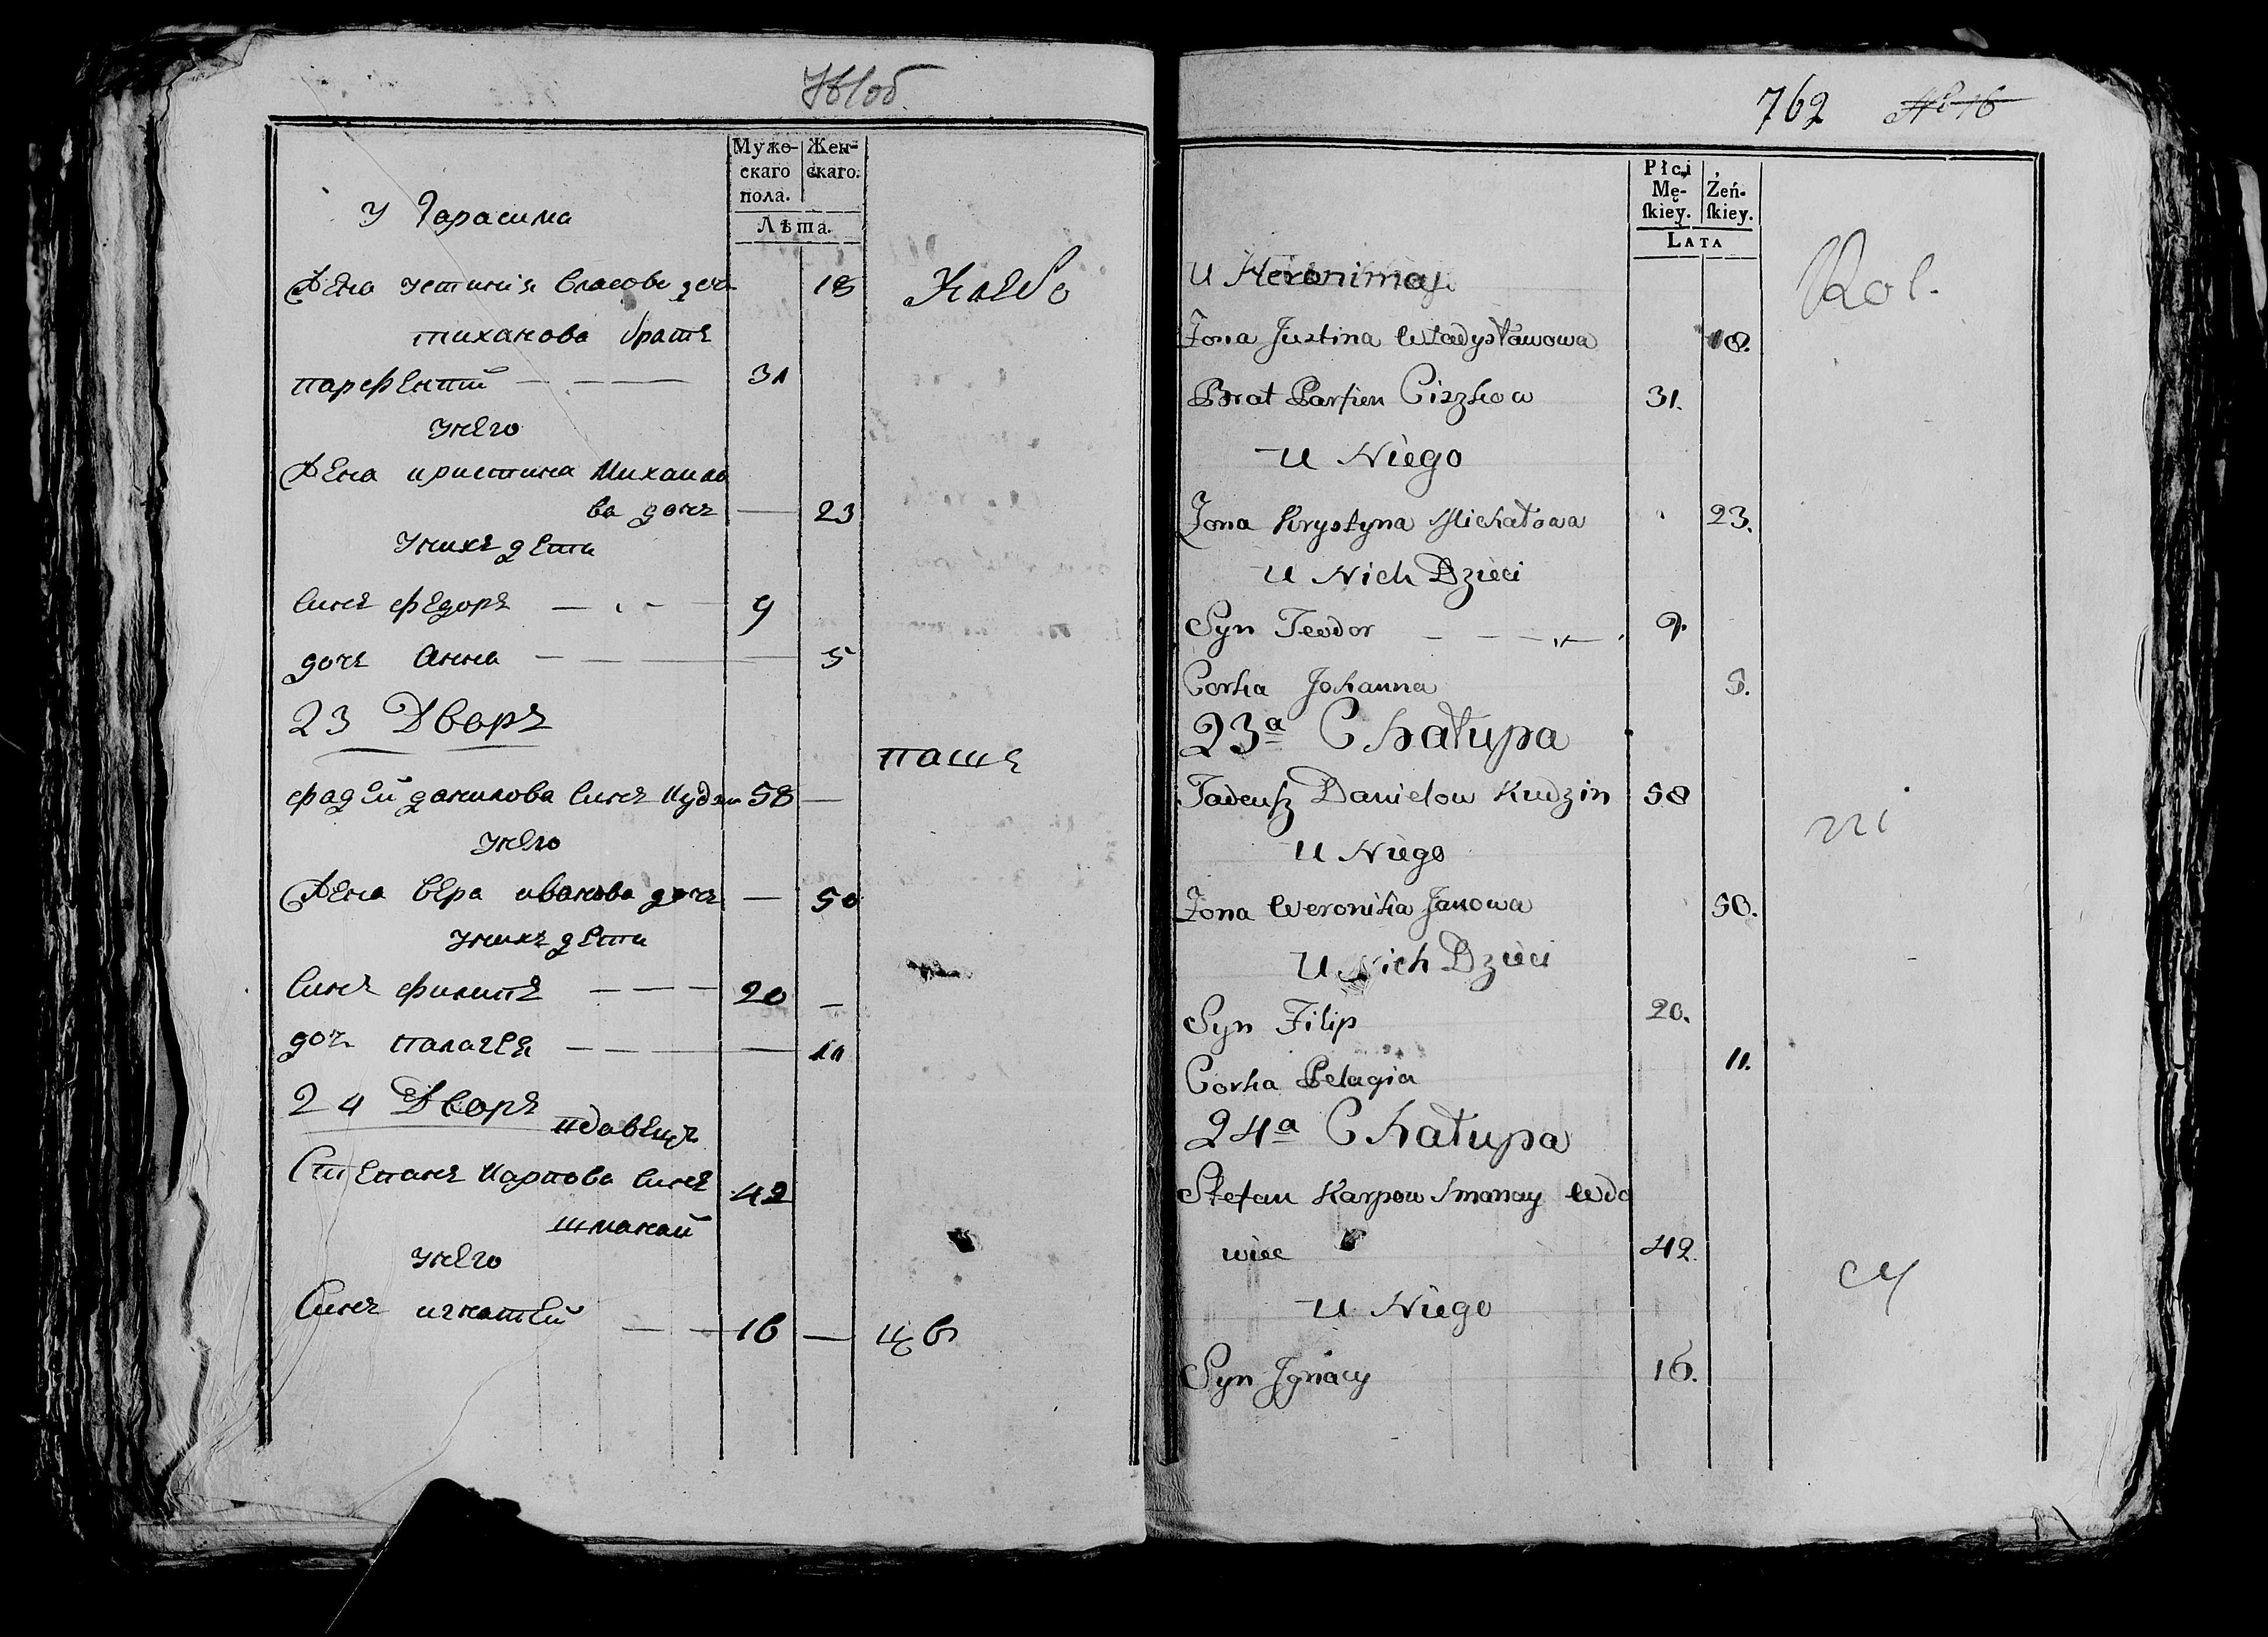 Муже-
скаго
пола.
Жен-
скаго.
Лѣта.
У Гарасима
Жена устинія власова доч 18
тиханова братъ
парфентий 31
унего
Жена кристина Михаило
ва дочъ 23
унихъ дети
Синъ федоръ 9
дочъ анна 5
23 Дворъ
фадей данилова Синъ Кудзи 58
унего
Жена вера иванова дочъ 50
унихъ дети
Синъ филипъ 20
доч палагея 11
24 Дворъ
вдавецъ
Степанъ Карпова Синъ 42
шманай
унего
Синъ игнатей 16
762 № 16
Płci
Mę-
ſkiey.
Żeń-
ſkiey.
LATA
U Heronima
Żona Justina Władysławowa 18.
Brat Parfien Ciszkow 31.
U Niego
Żona Krystyna Michałowa 23.
U Nich Dzieci
Syn Teodor 9.
Corka Johanna 5.
23ª Chałupa
Tadeuſz Danielow Kudzin 58
U Niego
Żona Weronika Janowa 50.
U Nich Dzieci
Syn Filip 20.
Corka Pelagia 11.
24ª Chałupa
Stefan Karpow Smanay Wdo
wiec 42.
U Niego
Syn Jgnacy 16.